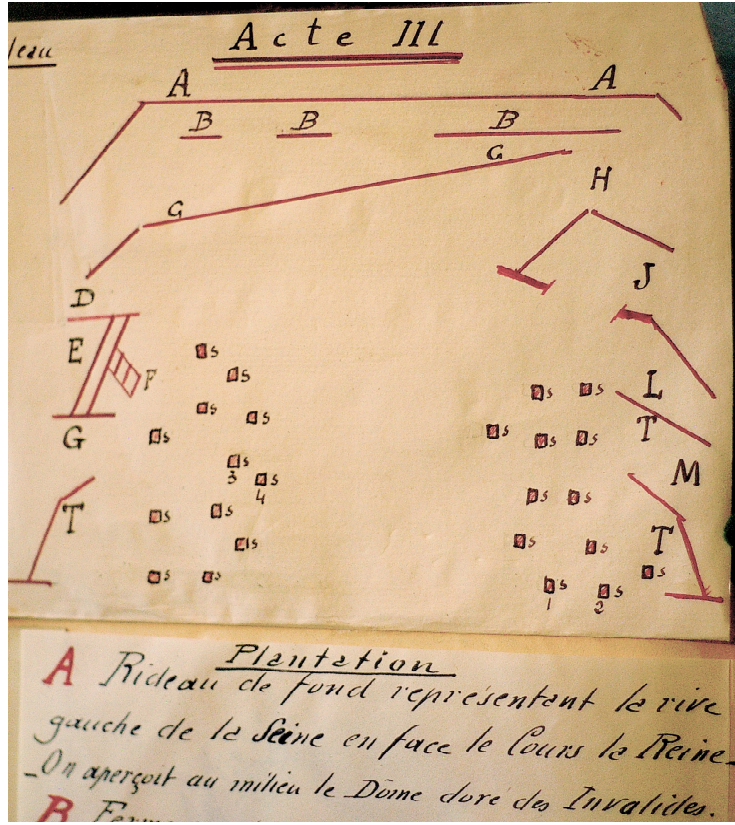 leau
Acte III
A A
B B B
G
H
G
J
D
E
F
S
S
S
S
S
G
S
3
S
4
S
T
S
S
S
S
S
S
L
S
S
S
T
M
S
S
S
S
T
S
S
1
S
2
Plantation
A Rideau de fond représentant la rive
gauche de la Seine en face le Cours la Reine_
_On aperçoit au milieu le Dôme doré des Invalides.
B